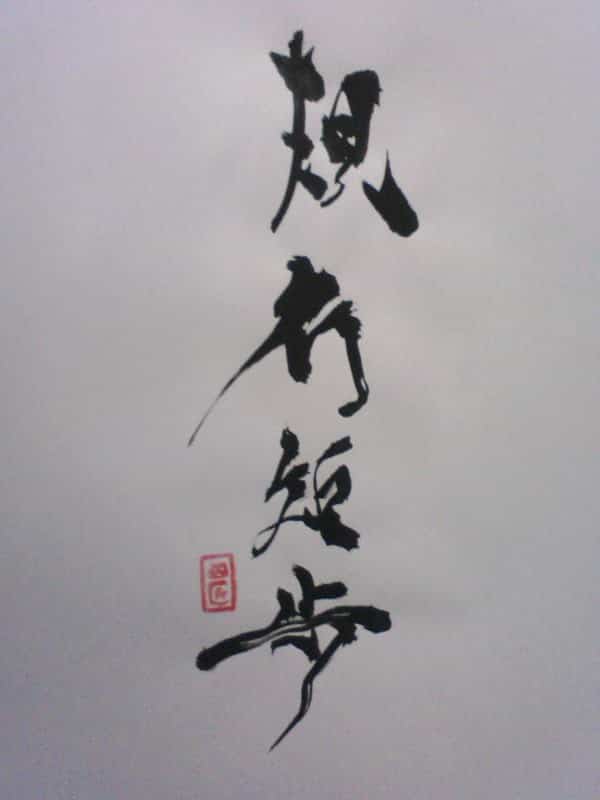 規行矩步